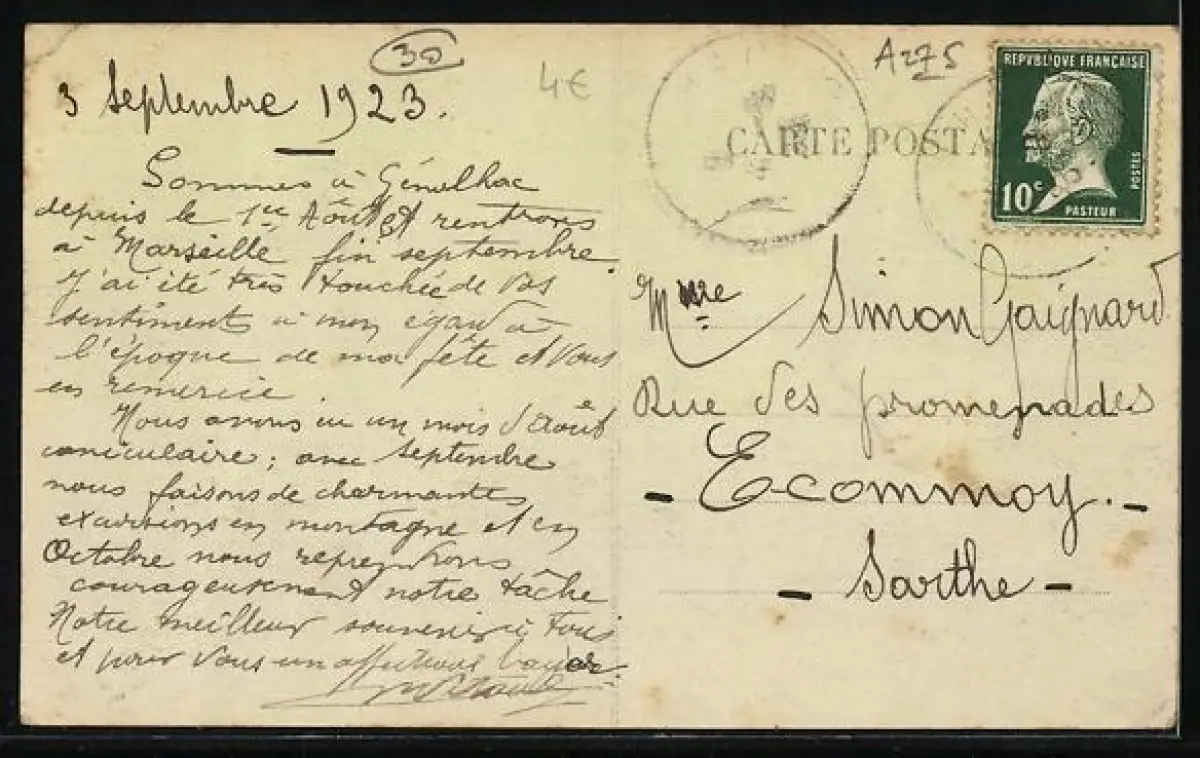 30
3 Septembre 1923.
4€
A275
CARTE POSTA
REPUBLIQUE FRANÇAISE
10c
POSTES
PASTEUR
Sommes à Génolhac
depuis le 1er Août et rentrons
à Marseille fin septembre.
J'ai été très touchée de vos
sentiments à mon égard à
l'époque de ma fête et vous
en remercie
Nous avons eu un mois d'août
caniculaire ; avec septembre
nous faisons de charmantes
excursions en montagne et en
Octobre nous reprendrons
courageusement notre tâche
Notre meilleur souvenir à tous
et pour vous un affectueux baiser.
Mme Simon Gaignard
Rue des promenades
- Ecommoy. -
- Sarthe -